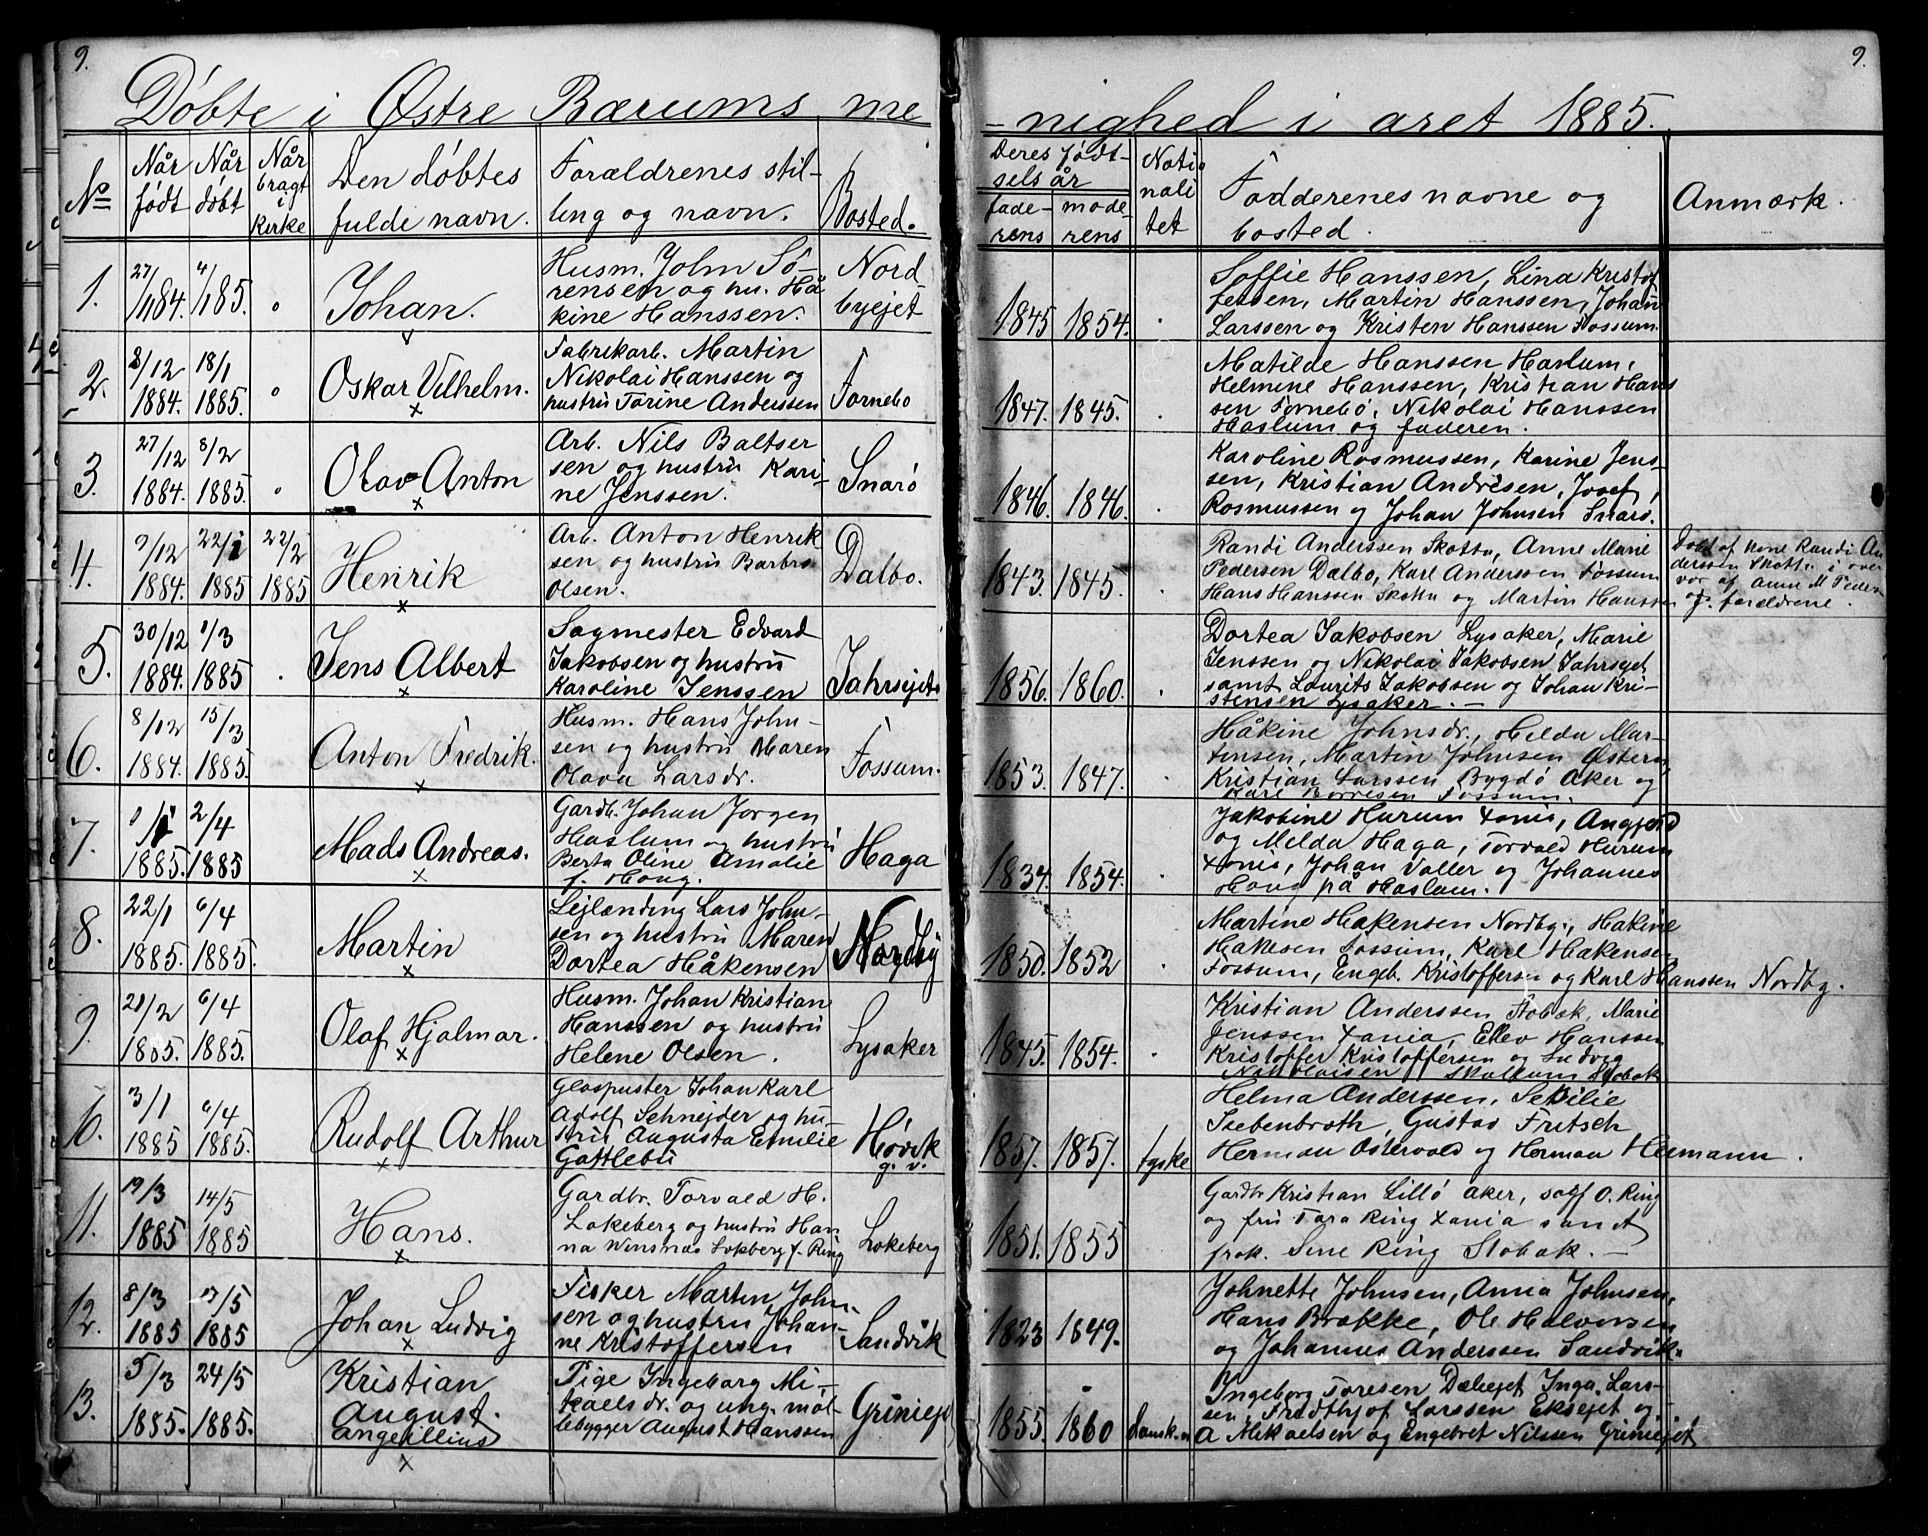 9.
9.
Döbte i Østre Bærums me
-nighed i aret 1885.
№
Når født
Når döbt
Når bragt i kirke
Den döbtes fulde navn.
Forældrenes stilling og navn.
Bosted.
Deres fødtselsår
faderens
moderens
Nationalitet
Fadderenes navne og bosted.
Anmærk.
1. 27/11 84. 4/1 85. " Johan.
Husm. John Sö-
rensen og hu. Hå
kine Hanssen.
Nord
byejet
1845 1854.
Soffie Hanssen, Lina Kristof
fersen, Martin Hanssen, Johan
Larssen og Kristen Hanssen Fossum.
2. 8/12 1884. 18/1 1885. " Oskar Vilhelm.
Fabrikarb. Martin
Nikolai Hanssen og
hustru Torine Anderssen
Fornebo
1847. 1845.
Matilde Hanssen Haslum,
Helmine Hanssen, Kristian Hans
sen Fornebö, Nikolai Hanssen
Haslum og faderen.
3. 27/12 1884. 8/2 1885. " Olav Anton
Arb. Nils Baltser
sen og hustru Kari-
ne Jenssen.
Snarö
1846. 1846.
Karoline Rosmussen, Karine Jens-
sen, Kristian Andrésen, Josef,
Rosmussen og Johan Johnsen Snarö.
4. 9/12 1884. 22/1 1885 22/2 1885 Henrik
Arb. Anton Henrik
sen og hustru Barbro
Olsen.
Dalbo.
1843. 1845.
Randi Anderssen Skotta, Anne Marie
Pedersen Dalbo, Karl Anderssen Fossum
Hans Hanssen Skotta og Martin Hanssen
Döbt af kone Randi An
derssen Skotta i over
vær af Anne M Peders
og forældrene.
5. 30/12 1884. 1/3 1885 . Jens Albert
Sagmester Edvard
Jakobsen og hustru
Karoline Jenssen
Jahrsejet
1856. 1860.
Dortea Jakobsen Lysaker, Marie
Jenssen og Nikolai Jakobsen Jahrsejet
samt Laurits Jakobsen og Johan Kri-
stensen Lysaker. —
6. 8/12 1884. 15/3 1885. Anton Fredrik.
Husm. Hans John-
sen og hustru Maren
Olava Larsdr.
Fossum.
1853. 1847.
Håkine Johnsdr., Helda Mar-
tinsen, Martin Johnsen Östern
Kristian Larssen Bygdö Aker og
Karl Börresen Fossum.
7. 1885. 2/4 1885 Mads Andreas.
Gardb. Johan Jorgen
Haslum og hustru
Berta Oline Amalie
f. Haug.
Haga
1834. 1854.
Jakobine Hurum Xania, Angjerd
og Melda Haga, Torvald Hurum
Xania, Johan Valler og Johannes
Haug på Haslum.
8. 22/1 1885. 6/4 1885. Martin
Lejlænding Lars John-
sen og hustru Maren
Dortea Håkensen
Nordby
1850. 1852
Martine Hakensen Nordby, Hakine
Hakesen Fossum, Karl Hakensen
Fossum, Engeb. Kristoffersen og Karl Hanssen Nordby.
9. 21/2 1885. 6/4 1885. Olaf Hjalmar.
Husm. Johan Kristian
Hanssen og hustru
Helene Olsen.
Lysaker
1845. 1854.
Kristian Anderssen Stobæk, Marie
Jenssen Xania, Ellev Hanssen
Kristoffer Kristoffersen og Ludvig
Nikolaisen Skallum Stobæk
10. 3/1 1885 6/4 1885. Rudolf Arthur
Glaspuster Johan Karl
Adolf Schnejder og hu-
stru Augusta Emilie
Gottlebu
Hövik
g. v.
1857. 1857. tyske
Helma Anderssen, Sesilie
Isebenbroth, Gustav Fritsch
Herman Ostervald og Herman Heimann.
11. 19/3 1885 14/5 1885 Hans.
Gardbr. Torvald H.
Lokeberg og hustru Han
na Winsnæs Lokberg f. Ring
Lokeberg
1851. 1855
Gardbr Kristian Lillö Aker, sagf O. Ring
og fru Tara Ring Xania samt
frøk. Sine Ring Stobæk. —
12. 8/3 1885 17/5 1885 Johan Ludvig
Fisker Martin John-
sen og hustru Johan-
ne Kristoffersen
Sandvik
1823 1849.
Johnette Johnsen, Anna Johnsen,
Hans Brække, Ole Halvorsen
og Johannes Anderssen Sandvik.
13. 5/3 1885. 24/5 1885. Kristian
August.
Angellius
Pige Ingeborg Mi-
kaelsdr. og ung. möl
lebygger August Hanssen
Griniejet
1855. 1860 dansk.
Ingeborg Toresen Dælejet Inga Lars-
sen, Fredthjof Larssen Eksejet og
A Mikaelsen og Engebret Nilssen Griniejet